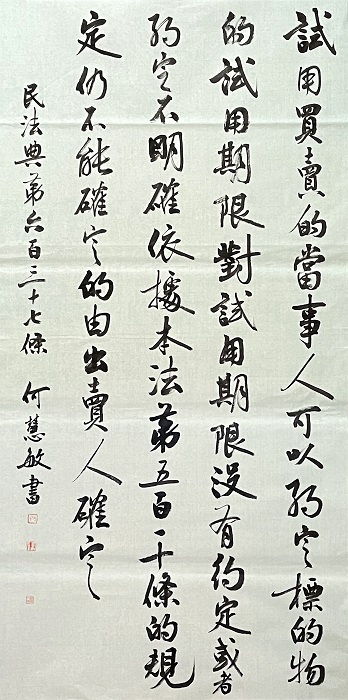 試用買賣的當事人可以約定標的物
的試用期限對試用期限没有約定或者
約定不明確依據本法第五百一十條的規
定仍不能確定的由出賣人確定
民法典第六百三十七條 何慧敏書